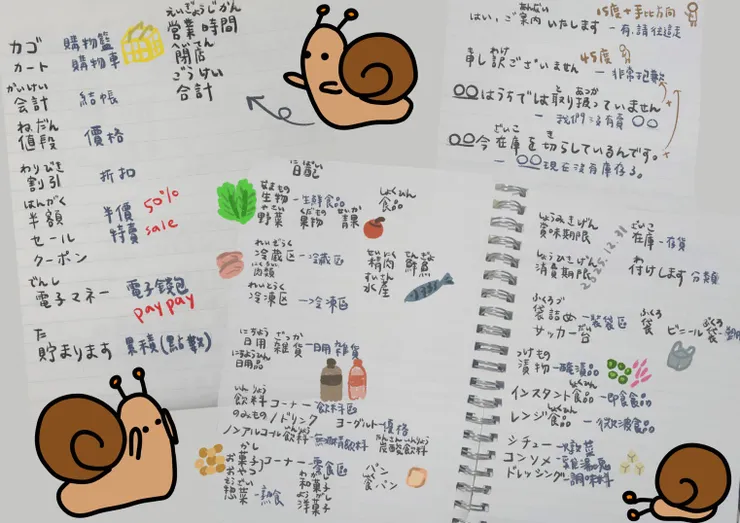 カゴ 購物籃
カート 購物車
かいけい
会計 結帳
ねだん
値段 價格
わりびき
割引 折扣
はんがく
半額 半價 50%
セール 特賣 sale
クーポン
でんし
電子マネー 電子錢包
paypay
た
貯まります 累積(點數)
えいぎょうじかん
営業時間
へいてん
閉店
ごうけい
合計
あんない
はい、ご案内いたします — 有,請往這走
15度+手比方向
もう わけ
申し訳ございません — 非常抱歉
45度
と あつか
○○はうちでは取り扱っていません
— 我們沒有賣○○
ざいこ き
○○今在庫を切らしているんです。
— ○○現在沒有庫存了。
なまもの
生物 — 生鮮食品
しょくひん
食品
やさい くだもの せいか
野菜 果物 青果
れいぞうく
冷蔵区 — 冷藏區
にくるい
肉類
せいにく せんぎょ
精肉 鮮魚
すいさん
水産
れいとうく
冷凍区 — 冷凍區
にちよう ざっか
日用雑貨 — 日用雜貨
にちようひん
日用品
いんりょう
飲料コーナー — 飲料區
のみもの/ドリンク
ヨーグルト — 優格
ノンアルコール飲料 — 無酒精飲料
たんさんいんりょう
炭酸飲料
かし
お菓子コーナー — 零食區
おやつ
そうざい
惣菜 — 熱食
わがし
和菓子
ようがし
洋菓子
パン
食パン
しょうみきげん
賞味期限
しょうひきげん
消費期限
2025.12.31
ざいこ
在庫 — 存貨
わ
付けします 分類
ふくろづ
袋詰め — 裝袋區
サッカー台
ふくろ
袋
ぶくろ
ビニール袋
つけもの
漬物 — 醃漬品
しょくひん
インスタント食品 — 即食食品
しょくひん
レンジ食品 — 微波食品
シチュー — 燉菜
コンソメ — 雞湯塊
ドレッシング — 調味料